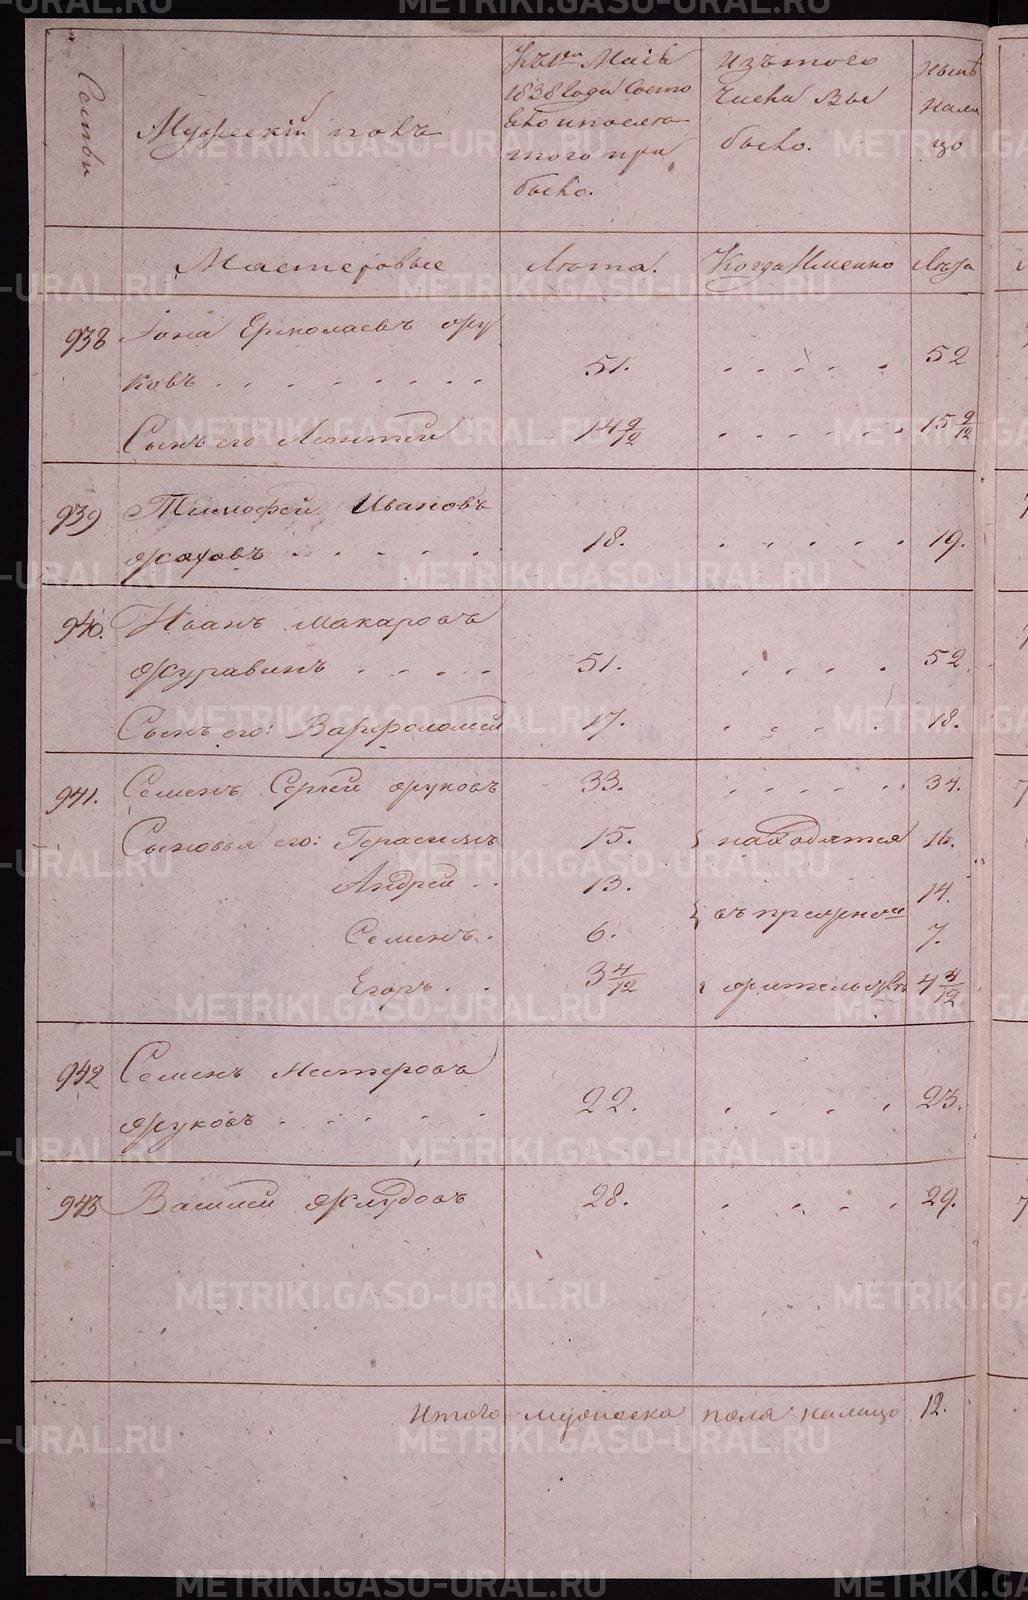 Семьи
Мужескій полъ
Къ 1му Маія
1838 Года Состо
яло и послѣ
того при
было.
Изъ того
Числа Вы
было.
Нынѣ
нали
цо
Мастеровые
Лѣта.
Когда Именно
Лѣта
938 Іона Ермолаевъ Жу
ковъ . . . . . . . . 51. . . . . . 52
Сынъ его Леонтей 14 9/12 . . . . . . 15 9/12
939 Тимофей Ивановъ
. . . . . 18. . . . . . 19.
940. Иванъ Макаровъ
Журавинъ . . . . 51. . . . . 52.
Сынъ его: Варфоломей 17. . . . . 18.
941. Семенъ Сергѣй Жуковъ 33. . . . . . 34.
Сыновья его: Герасимъ 15. находятся 16.
Андрей . . 13. 14.
въ прежнем
Семенъ . 6. 7.
Егоръ . . 3 4/12 жительствѣ 4 4/12
942 Семенъ Нестеровъ
Жуковъ . . . . . 22. . . . . 23.
943 Василей Жлудовъ 28. . . . . 29.
Итого мужеска пола налицо 12.
METRIKI.GASO-URAL.RU